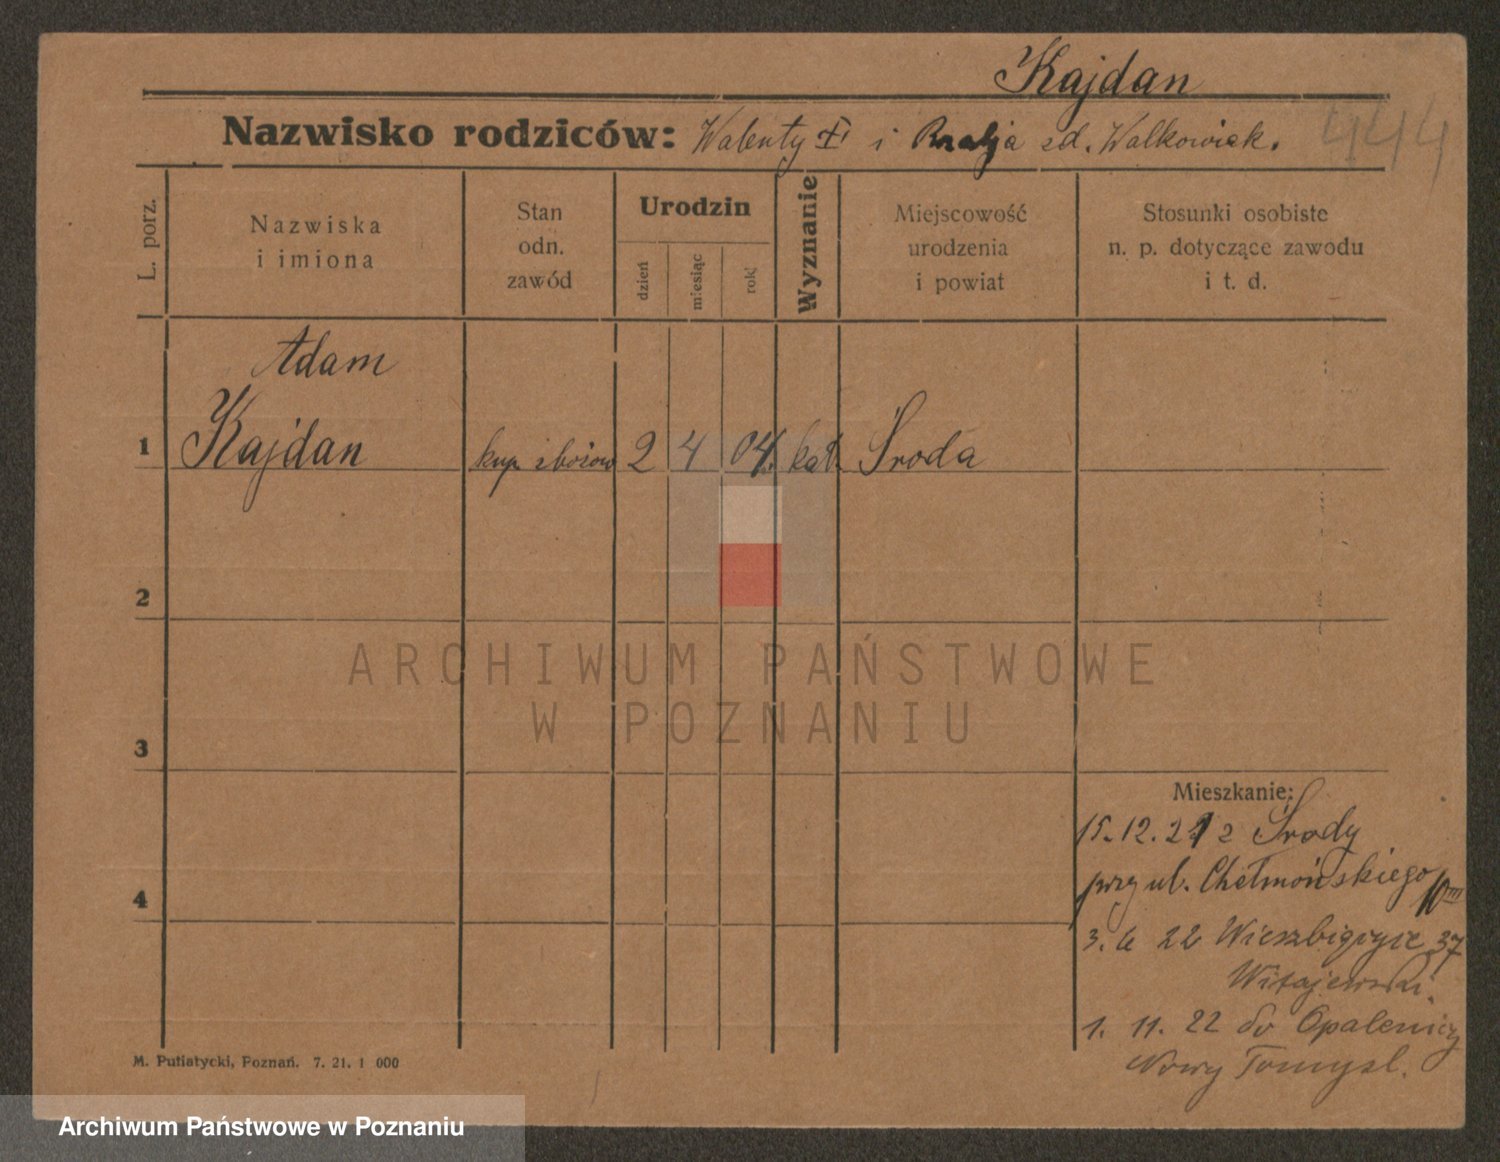 Kajdan
Nazwisko rodziców: Walenty i zd. Walkowiak.
444
L. porz.
Nazwiska
i imiona
Stan
odn.
zawód
Urodzin
dzień
miesiąc
rok
Wyznanie
Miejscowość
urodzenia
i powiat
Stosunki osobiste
n. p. dotyczące zawodu
i t. d.
Adam
1 Kajdan kup. zbożow 2 4 04. kat. Środa
2
ARCHIWUM PAŃSTWOWE
W POZNANIU
3
Mieszkanie:
15.12.21 z Środy
przy ul. Chełmońskiego 10 III
4
3. 6 22 37
Witajewski.
1. 11. 22 do Opalenicy
Nowy Tomysl.
M. Putiatycki, Poznań. 7. 21. 1 000
Archiwum Państwowe w Poznaniu